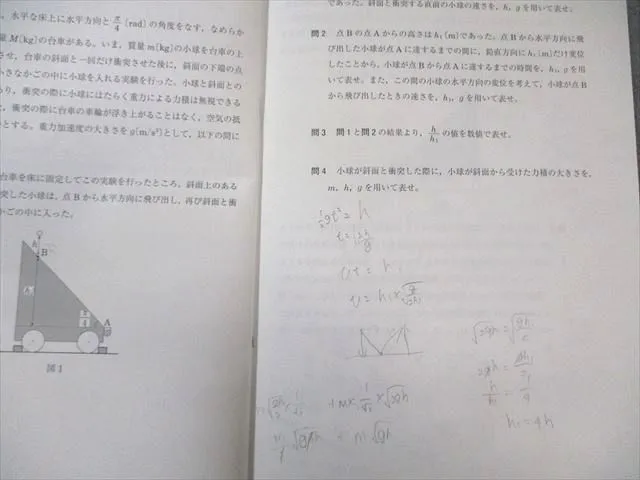 、水平な床上に水平方向と π/4 [rad] の角度をなす、なめらか
量 M[kg] の台車がある。いま、質量 m[kg] の小球を台車の上
させ、台車の斜面と一回だけ衝突させた後に、斜面の下端の点
小さなかごの中に小球を入れる実験を行った。小球と斜面との
あり、衝突の際に小球にはたらく重力による力積は無視できる
た、衝突の際に台車の車輪が浮き上がることはなく、空気の抵
とする。重力加速度の大きさを g[m/s²] として、以下の問に
台車を床に固定してこの実験を行ったところ、斜面上のある
突した小球は、点Bから水平方向に飛び出し、再び斜面と衝
かごの中に入った。
h
B
h₁
π/4
A
図1
であった。斜面と衝突する直前の小球の速さを、h, g を用いて表せ。
問2 点Bの点Aからの高さは h₁[m] であった。点Bから水平方向に飛
び出した小球が点Aに達するまでの間に、鉛直方向に h₁[m] だけ変位
したことから、小球が点Bから点Aに達するまでの時間を、h₁, g を用
いて表せ。また、この間の小球の水平方向の変位を考えて、小球が点B
から飛び出したときの速さを、h₁, g を用いて表せ。
問3 問1と問2の結果より、h/h₁ の値を数値で表せ。
問4 小球が斜面と衝突した際に、小球が斜面から受けた力積の大きさを、
m, h, g を用いて表せ。
½gt² = h
vt = h₁
h/h₁ = 1/4
h₁ = 4h
= m√gh